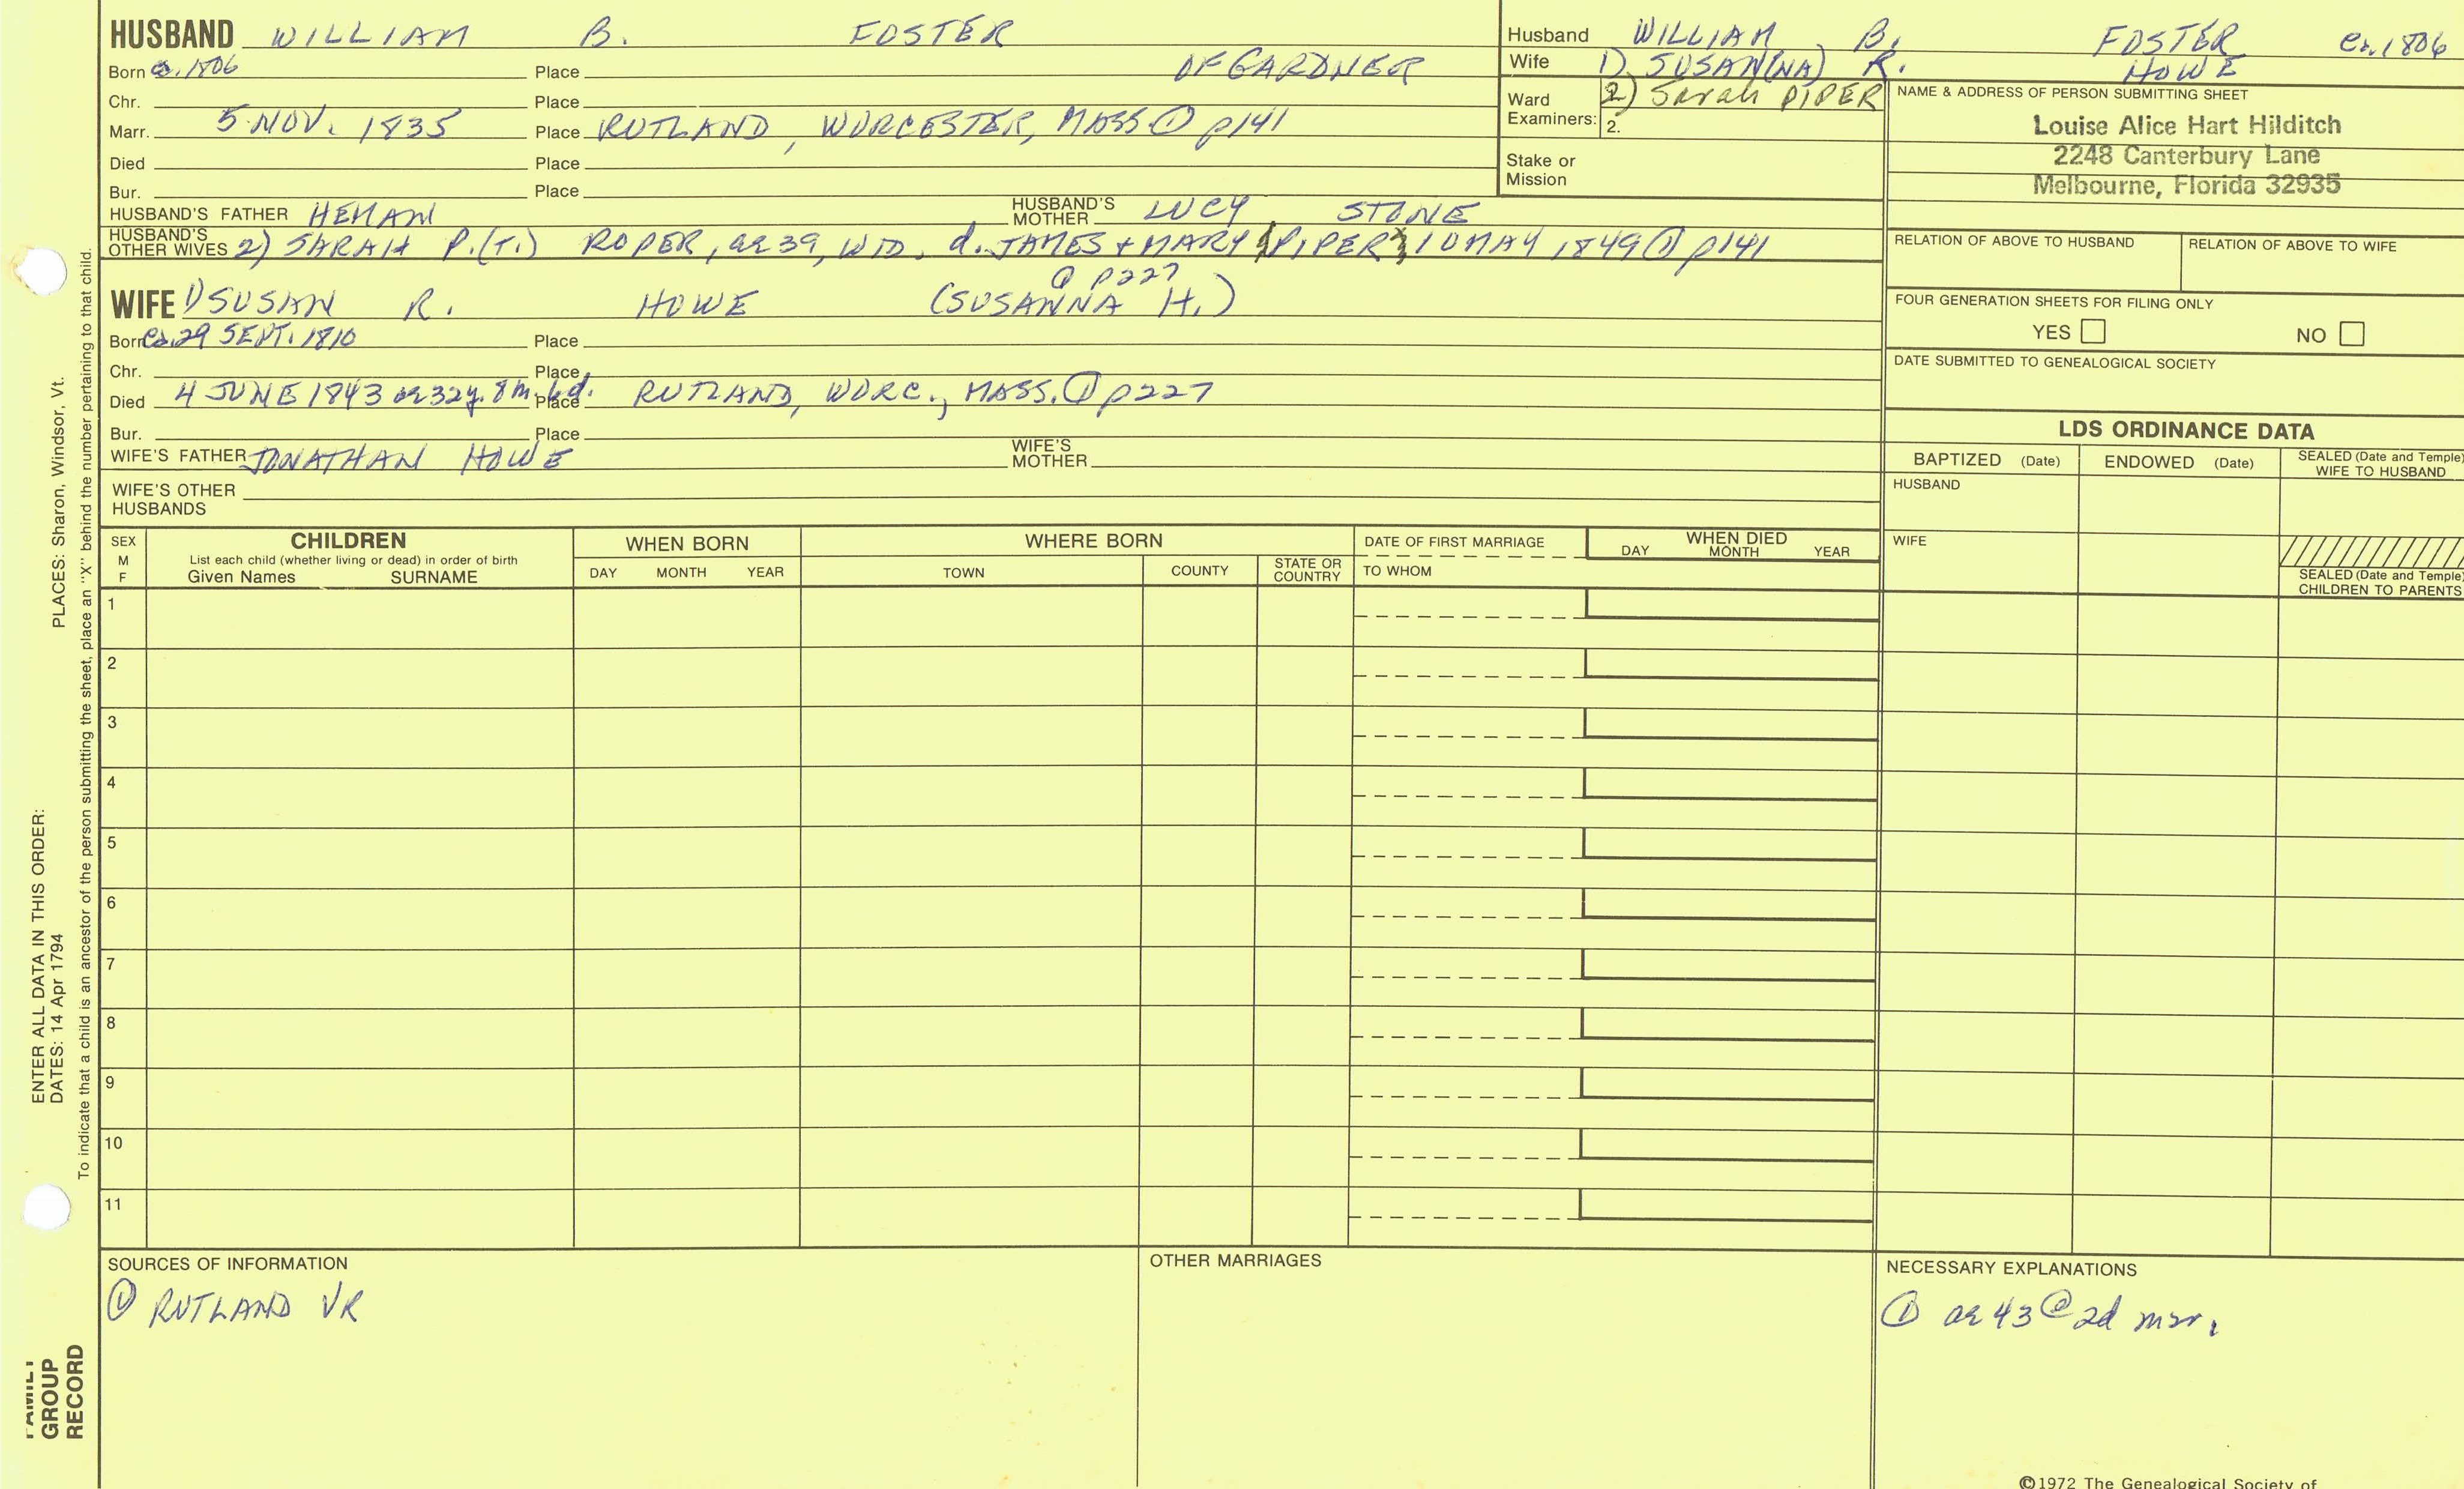 HUSBAND WILLIAM B. FOSTER
Born ca. 1806 Place OF GARDNER
Chr. Place
Marr. 5 NOV. 1835 Place RUTLAND, WORCESTER, MASS ① p141
Died Place
Bur. Place
HUSBAND'S FATHER HEMAN HUSBAND'S MOTHER LUCY STONE
HUSBAND'S OTHER WIVES 2) SARAH P. (T.) ROPER, ae 39, WID. d. JAMES + MARY (PIPER) 10 MAY 1849 ① p141
① p227
WIFE 1) SUSAN R. HOWE (SUSANNA H.)
Born ca. 29 SEPT. 1810 Place
Chr. Place
Died 4 JUNE 1843 ae 32y. 8m. 6d. Place RUTLAND, WORC., MASS. ① p227
Bur. Place
WIFE'S FATHER JONATHAN HOWE WIFE'S MOTHER
WIFE'S OTHER HUSBANDS
Husband WILLIAM B. FOSTER ca. 1806
Wife 1) SUSAN(NA) R. HOWE
Ward 2) Sarah PIPER
Examiners: 2.
Stake or Mission
NAME & ADDRESS OF PERSON SUBMITTING SHEET
Louise Alice Hart Hilditch
2248 Canterbury Lane
Melbourne, Florida 32935
RELATION OF ABOVE TO HUSBAND RELATION OF ABOVE TO WIFE
FOUR GENERATION SHEETS FOR FILING ONLY
YES NO
DATE SUBMITTED TO GENEALOGICAL SOCIETY
LDS ORDINANCE DATA
BAPTIZED (Date) ENDOWED (Date) SEALED (Date and Temple) WIFE TO HUSBAND
HUSBAND
WIFE
SEALED (Date and Temple) CHILDREN TO PARENTS
SEX M F CHILDREN WHEN BORN WHERE BORN DATE OF FIRST MARRIAGE WHEN DIED
List each child (whether living or dead) in order of birth
Given Names SURNAME DAY MONTH YEAR TOWN COUNTY STATE OR COUNTRY TO WHOM DAY MONTH YEAR
1
2
3
4
5
6
7
8
9
10
11
SOURCES OF INFORMATION
① RUTLAND VR
OTHER MARRIAGES
NECESSARY EXPLANATIONS
① ae 43 @ 2d mar.
©1972 The Genealogical Society of
ENTER ALL DATA IN THIS ORDER:
DATES: 14 Apr 1794 PLACES: Sharon, Windsor, Vt.
To indicate that a child is an ancestor of the person submitting the sheet, place an "X" behind the number pertaining to that child.
FAMILY
GROUP
RECORD